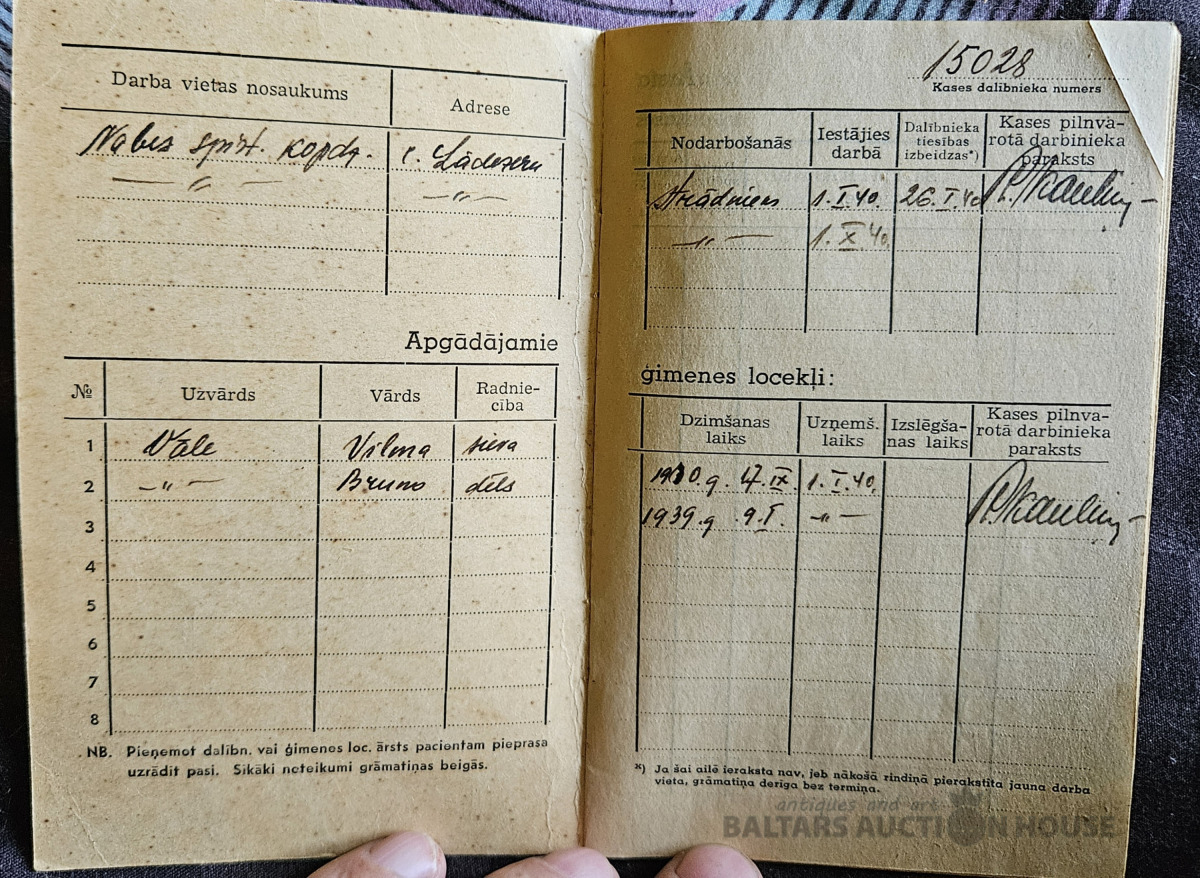 Darba vietas nosaukums Adrese
spirt. kopdz.
— „ — — „ —
Apgādājamie
№ Uzvārds Vārds Radnie-
cība
1 Vāle Vilma sieva
2 — „ — Bruno dēls
3
4
5
6
7
8
NB. Pieņemot dalībn. vai ģimenes loc. ārsts pacientam pieprasa
uzrādīt pasi. Sīkāki noteikumi grāmatiņas beigās.
15028
Kases dalībnieka numurs
Nodarbošanās Iestājies
darbā Dalībnieka
tiesības
izbeidzas*) Kases pilnva-
rotā darbinieka
paraksts
strādnieks 1.I.40. 26.I.40
— „ — 1.X 40.
ģimenes locekļi:
Dzimšanas
laiks Uzņemš.
laiks Izslēgša-
nas laiks Kases pilnva-
rotā darbinieka
paraksts
1910.g. 17.IX. 1.I.40.
1939.g 9.I. — „ —
*) Ja šai ailē ieraksta nav, jeb nākošā rindiņā pierakstīta jauna darba
vieta, grāmatiņa derīga bez termiņa.
antiques and art
BALTARS AUCTION HOUSE